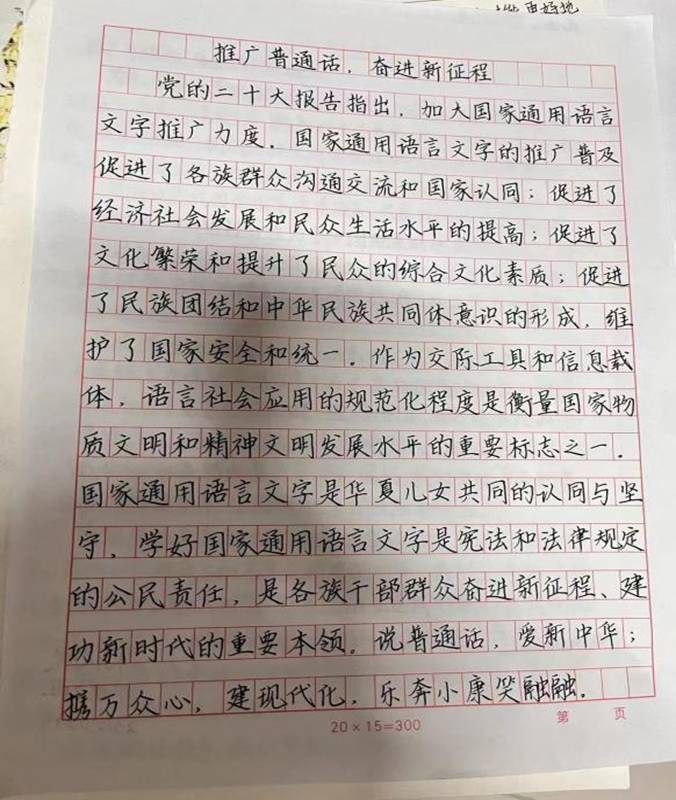 更好地
推广普通话，奋进新征程
党的二十大报告指出，加大国家通用语言
文字推广力度。国家通用语言文字的推广普及
促进了各族群众沟通交流和国家认同；促进了
经济社会发展和民众生活水平的提高；促进了
文化繁荣和提升了民众的综合文化素质；促进
了民族团结和中华民族共同体意识的形成，维
护了国家安全和统一。作为交际工具和信息载
体，语言社会应用的规范化程度是衡量国家物
质文明和精神文明发展水平的重要标志之一。
国家通用语言文字是华夏儿女共同的认同与坚
守，学好国家通用语言文字是宪法和法律规定
的公民责任，是各族干部群众奋进新征程、建
功新时代的重要本领。说普通话，爱新中华；
携万众心，建现代化，乐奔小康笑融融。
20×15=300
第 页